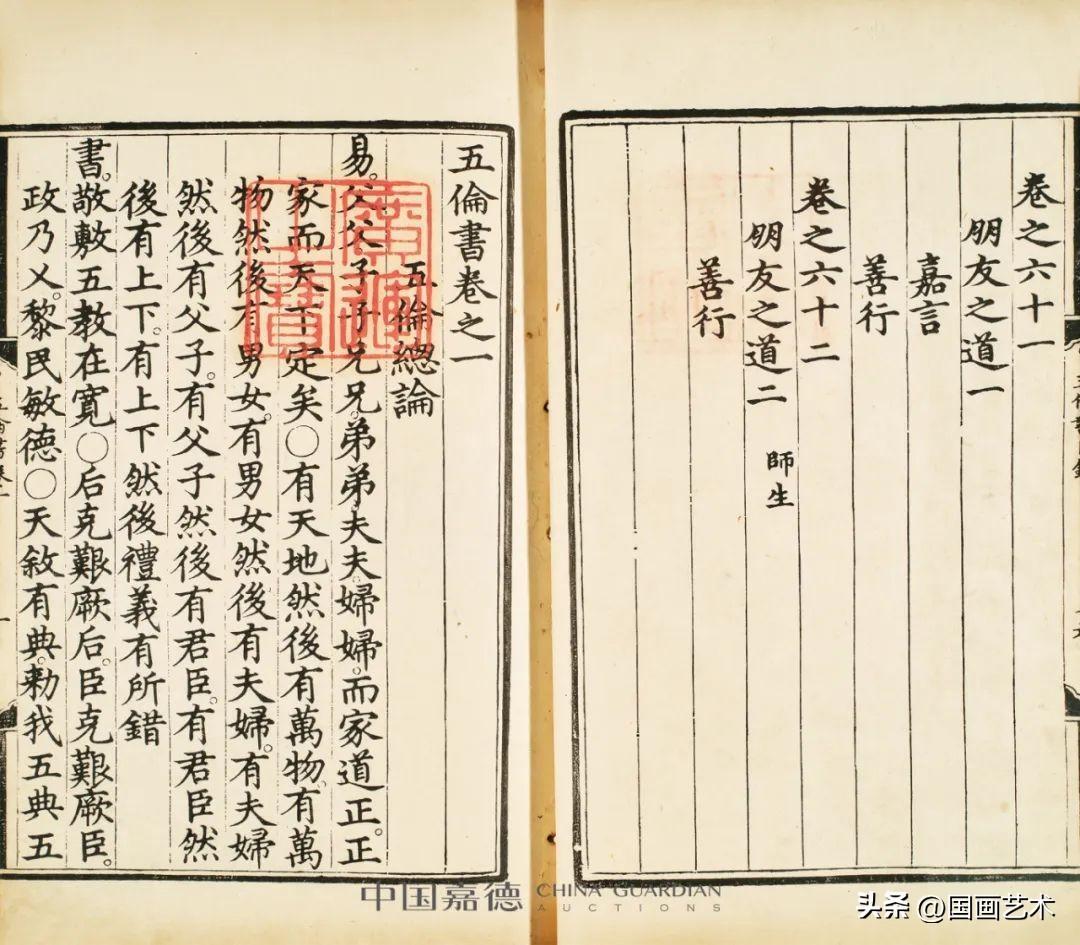 卷之六十一
朋友之道一
嘉言
善行
卷之六十二
朋友之道二 師生
善行
五倫書卷之一
五倫總論
易。父父子子兄兄。弟弟。夫夫。婦婦。而家道正。正
家而天下定矣○有天地然後有萬物。有萬
物然後有男女。有男女然後有夫婦。有夫婦
然後有父子。有父子然後有君臣。有君臣然
後有上下。有上下然後禮義有所錯
書。敬敷五教在寬○后克艱厥后。臣克艱厥臣。
政乃乂。黎民敏德○天敘有典。勑我五典五
中国嘉德 CHINA GUARDIAN
AUCTIONS
头条 @国画艺术